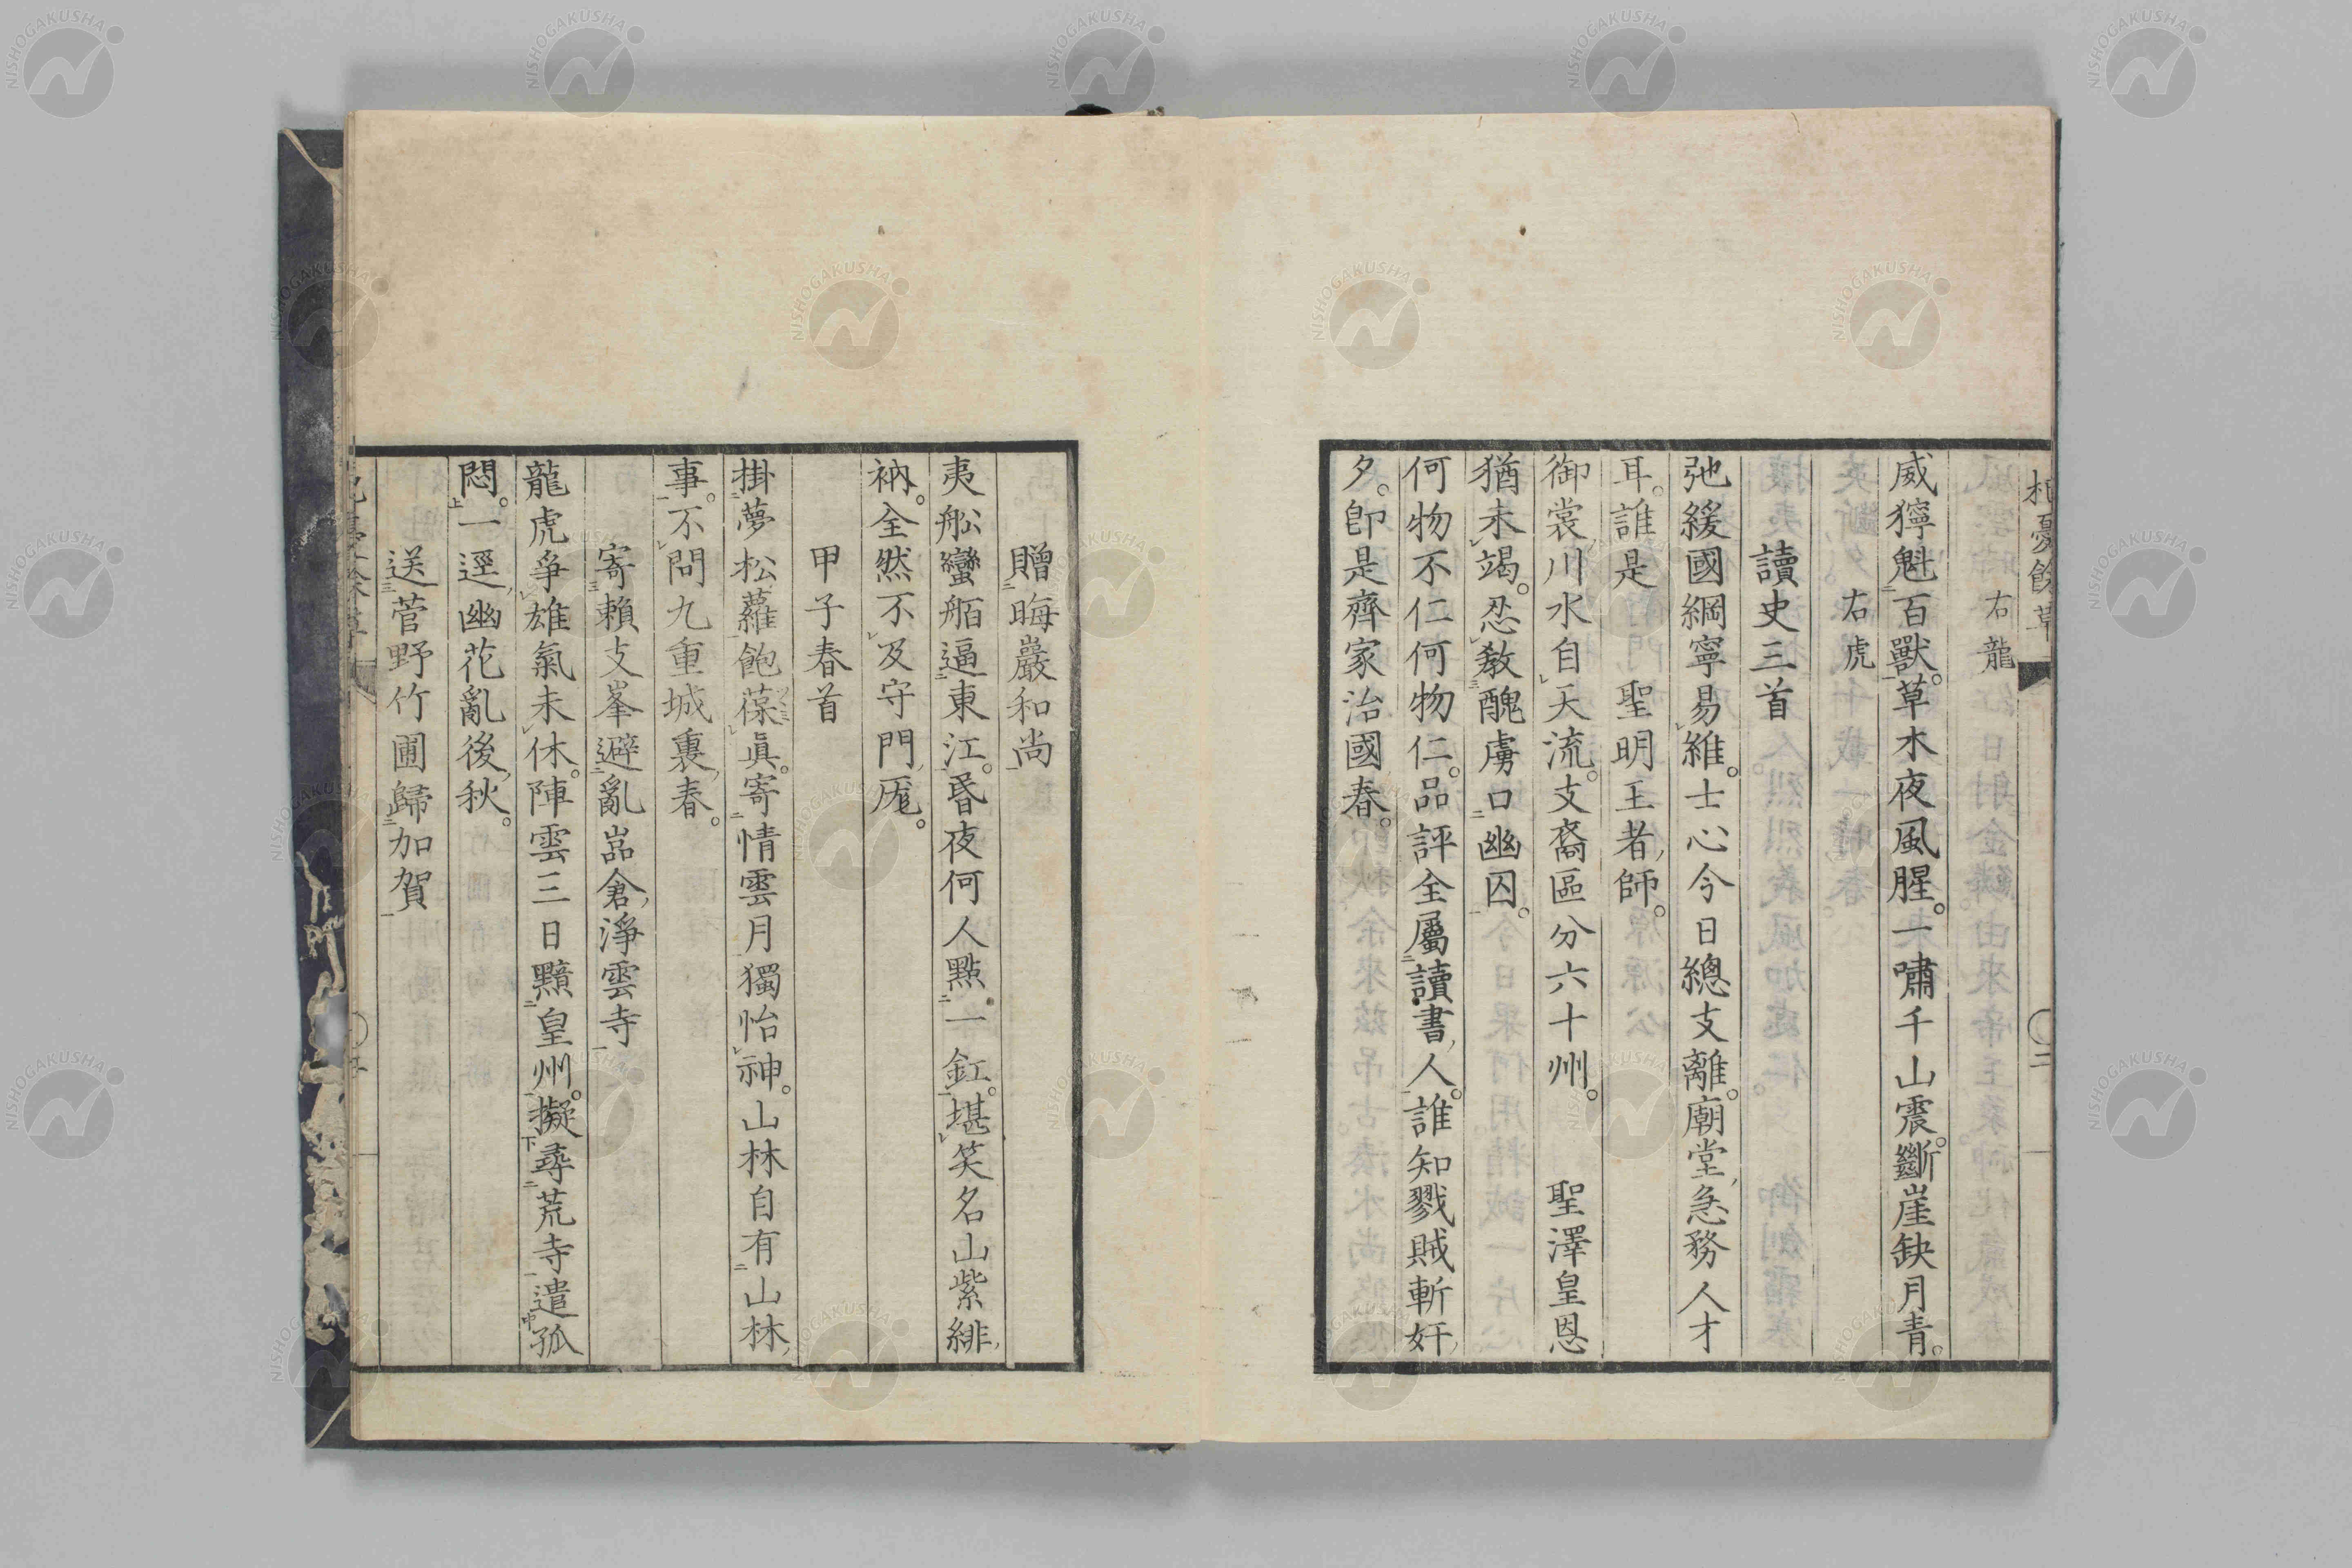 杞憂餘草
二
右龍
威獰魁百獸。草木夜風腥。一嘯千山震。斷崖缺月青。
右虎
讀史三首
弛緩國綱寧易維。士心今日總支離。廟堂急務人才
耳。誰是聖明王者師。
御裳川水自天流。支裔區分六十州。聖澤皇恩
猶未竭。忍教醜虜口幽囚。
何物不仁何物仁。品評全屬讀書人。誰知戮賊斬奸
夕。卽是齊家治國春。
贈晦巖和尚
夷舩蠻舶逼東江。昏夜何人點一釭。堪笑名山紫緋
衲。全然不及守門厖。
甲子春首
掛夢松蘿飽葆眞。寄情雲月獨怡神。山林自有山林
事。不問九重城裏春。
寄賴支峯避亂嵓倉淨雲寺
龍虎爭雄氣未休。陣雲三日黯皇州。擬尋荒寺遣孤
悶。一逕幽花亂後秋。
送菅野竹圃歸加賀
NISHOGAKUSHA